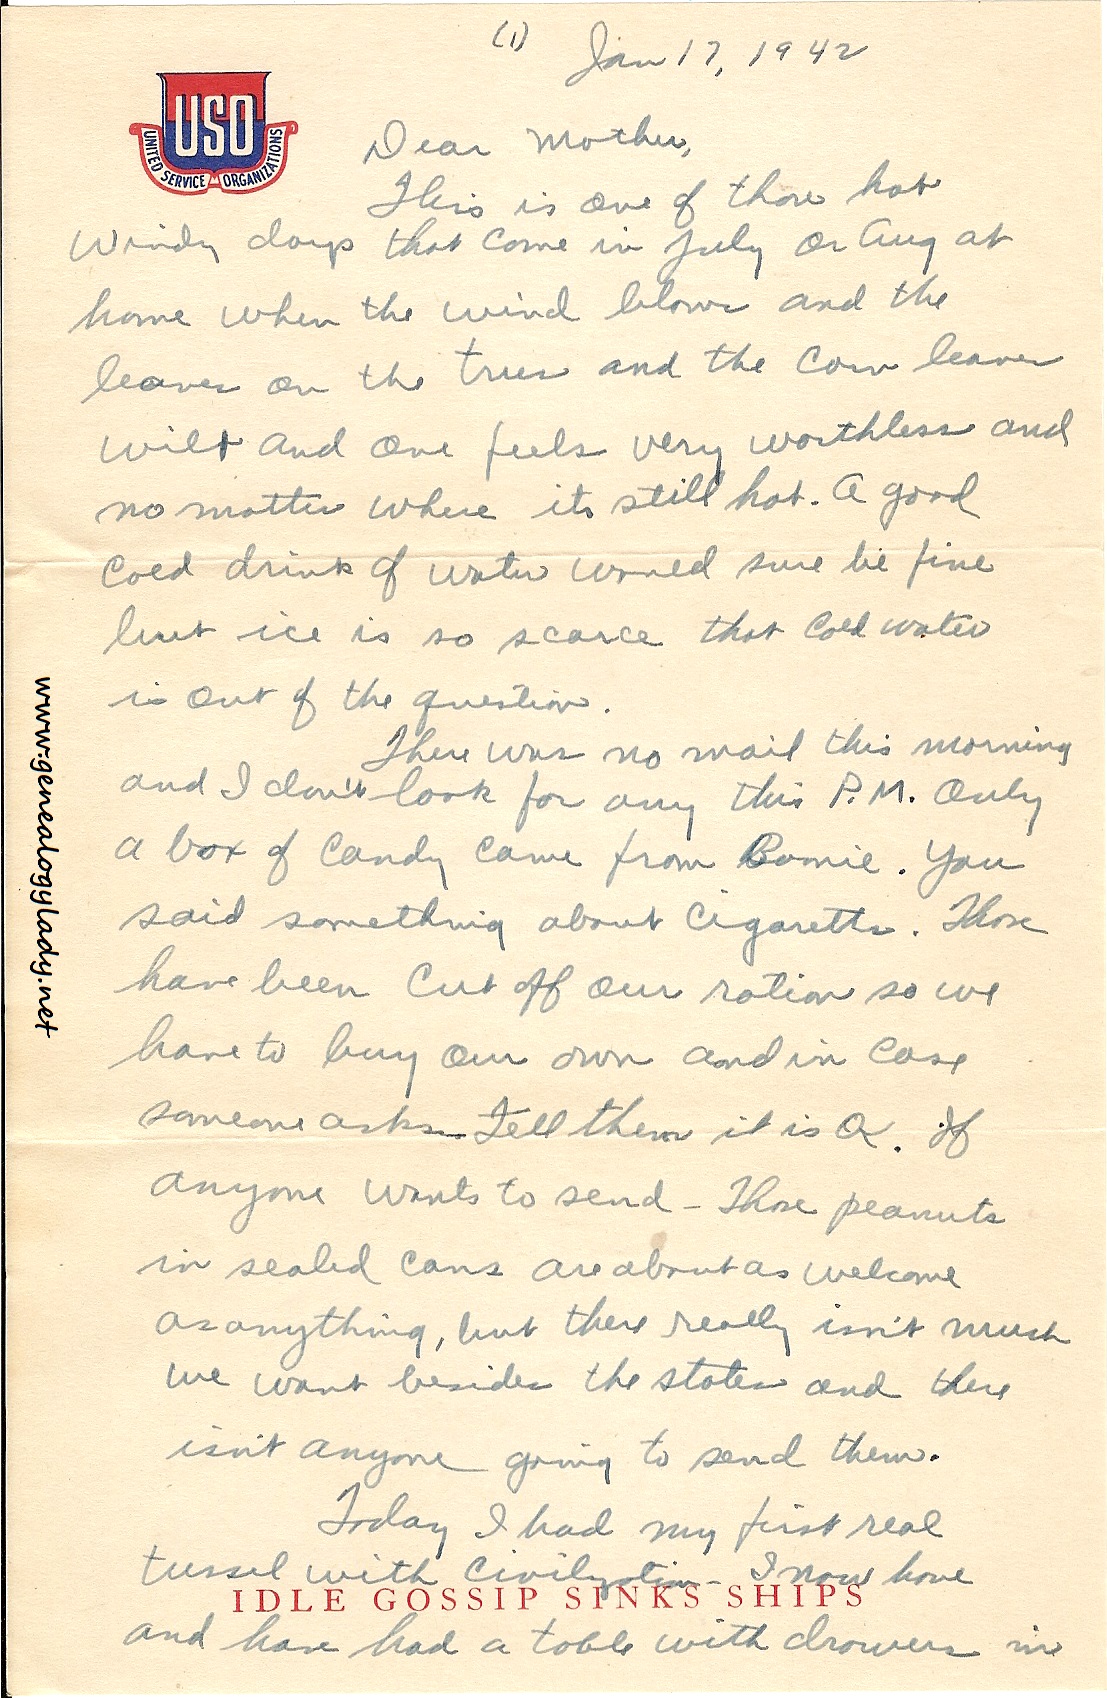 (1)
Jan 17, 1942
USO
UNITED SERVICE ORGANIZATIONS
Dear Mother,
This is one of those hot
windy days that come in July or Aug at
home when the wind blows and the
leaves on the trees and the corn leaves
wilt and one feels very worthless and
no matter where its still hot. A good
cold drink of water would sure be fine
but ice is so scarce that cold water
is out of the question.
There was no mail this morning
and I don't look for any this P.M. Only
a box of candy came from Bomie. You
said something about cigaretts. Those
have been cut off our ration so we
have to buy our own and in case
someone asks tell them it is O.K. If
anyone wants to send - Those peanuts
in sealed cans are about as welcome
as anything, but there really isn't much
we want besides the states and there
isn't anyone going to send them.
Today I had my first real
tussel with civilization - I now have
IDLE GOSSIP SINKS SHIPS
and have had a table with drawers in
www.genealogylady.net